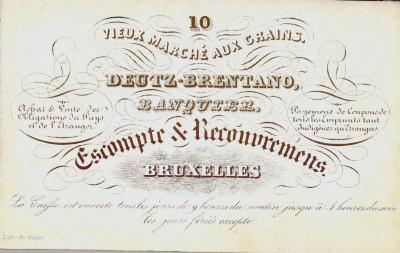 10
VIEUX MARCHÉ AUX GRAINS.
DEUTZ-BRENTANO,
BANQUIER.
Achat & Vente des
Obligations du Pays
et de l'Etranger
Payemens de Coupons de
tous les Emprunts tant
Indigènes qu'Etrangers
Escompte & Recouvremens.
BRUXELLES
La Caisse est ouverte tous les jours de 9 heures du matin jusqu'à 4 heures du soir
les jours fériés excepté.
Lith. de